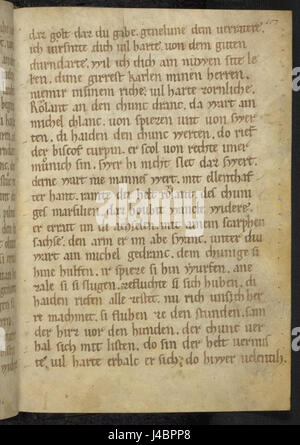 dar golt dar du gabe. genelune dem verratere.
ich virsnite dich vil harte. von dem guten
durndarte. wil ich dich an
ken. dune gurrest karlen minen herren.
niemir misinem riche. vil harte zornliche.
Rolant an den chunc dranc. da wart am
michel chlanc. von spiezen unt von swer
ten. di haiden den chunc werten. do rief
der biscof turpin. er scol von rechte iner
munich sin. swer hi nicht slet dar swert.
derne wart nie mannes wert. mit ellenthaf
ter hant. der helt rolant. des chuni
ges marsilien. dar houbt
er im mit ainem scarphen
sachse. den arm er im abe swanc. unter diu
wart ain michel gedranc. dem chunige si
hine hulfen. ir spieze si hin wurfen. ane
zale si si slugen. zefluchte si sich huben. di
haiden riefen alle nu rich unsich her
re machmet. si fluhen ze den stunden. sam
der hirz vor den hunden. der chunc ver
hal sich mit listen. do sin der helt vermis
te. vil harte erbalc er sich. do